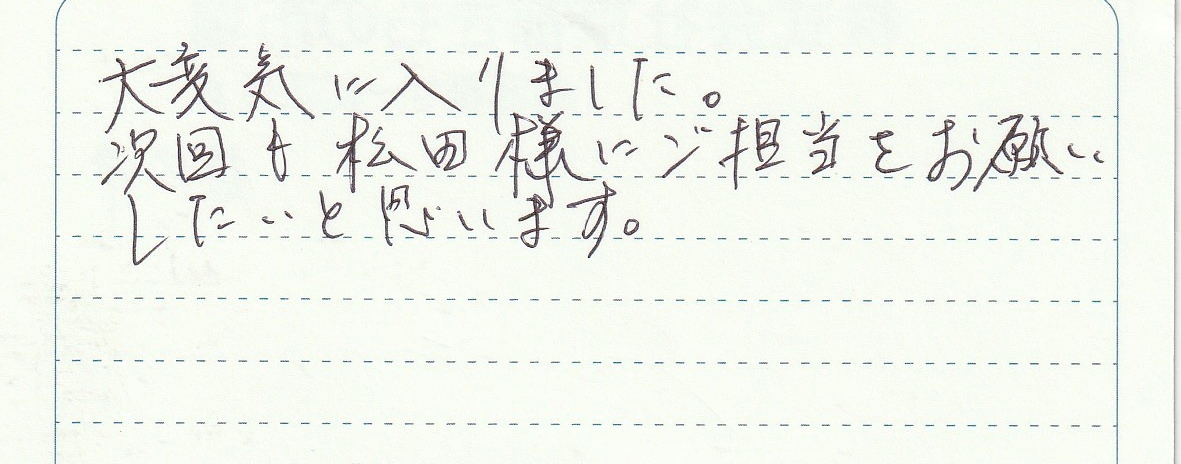 大変気に入りました。
次回も松田様にご担当をお願い
したいと思います。